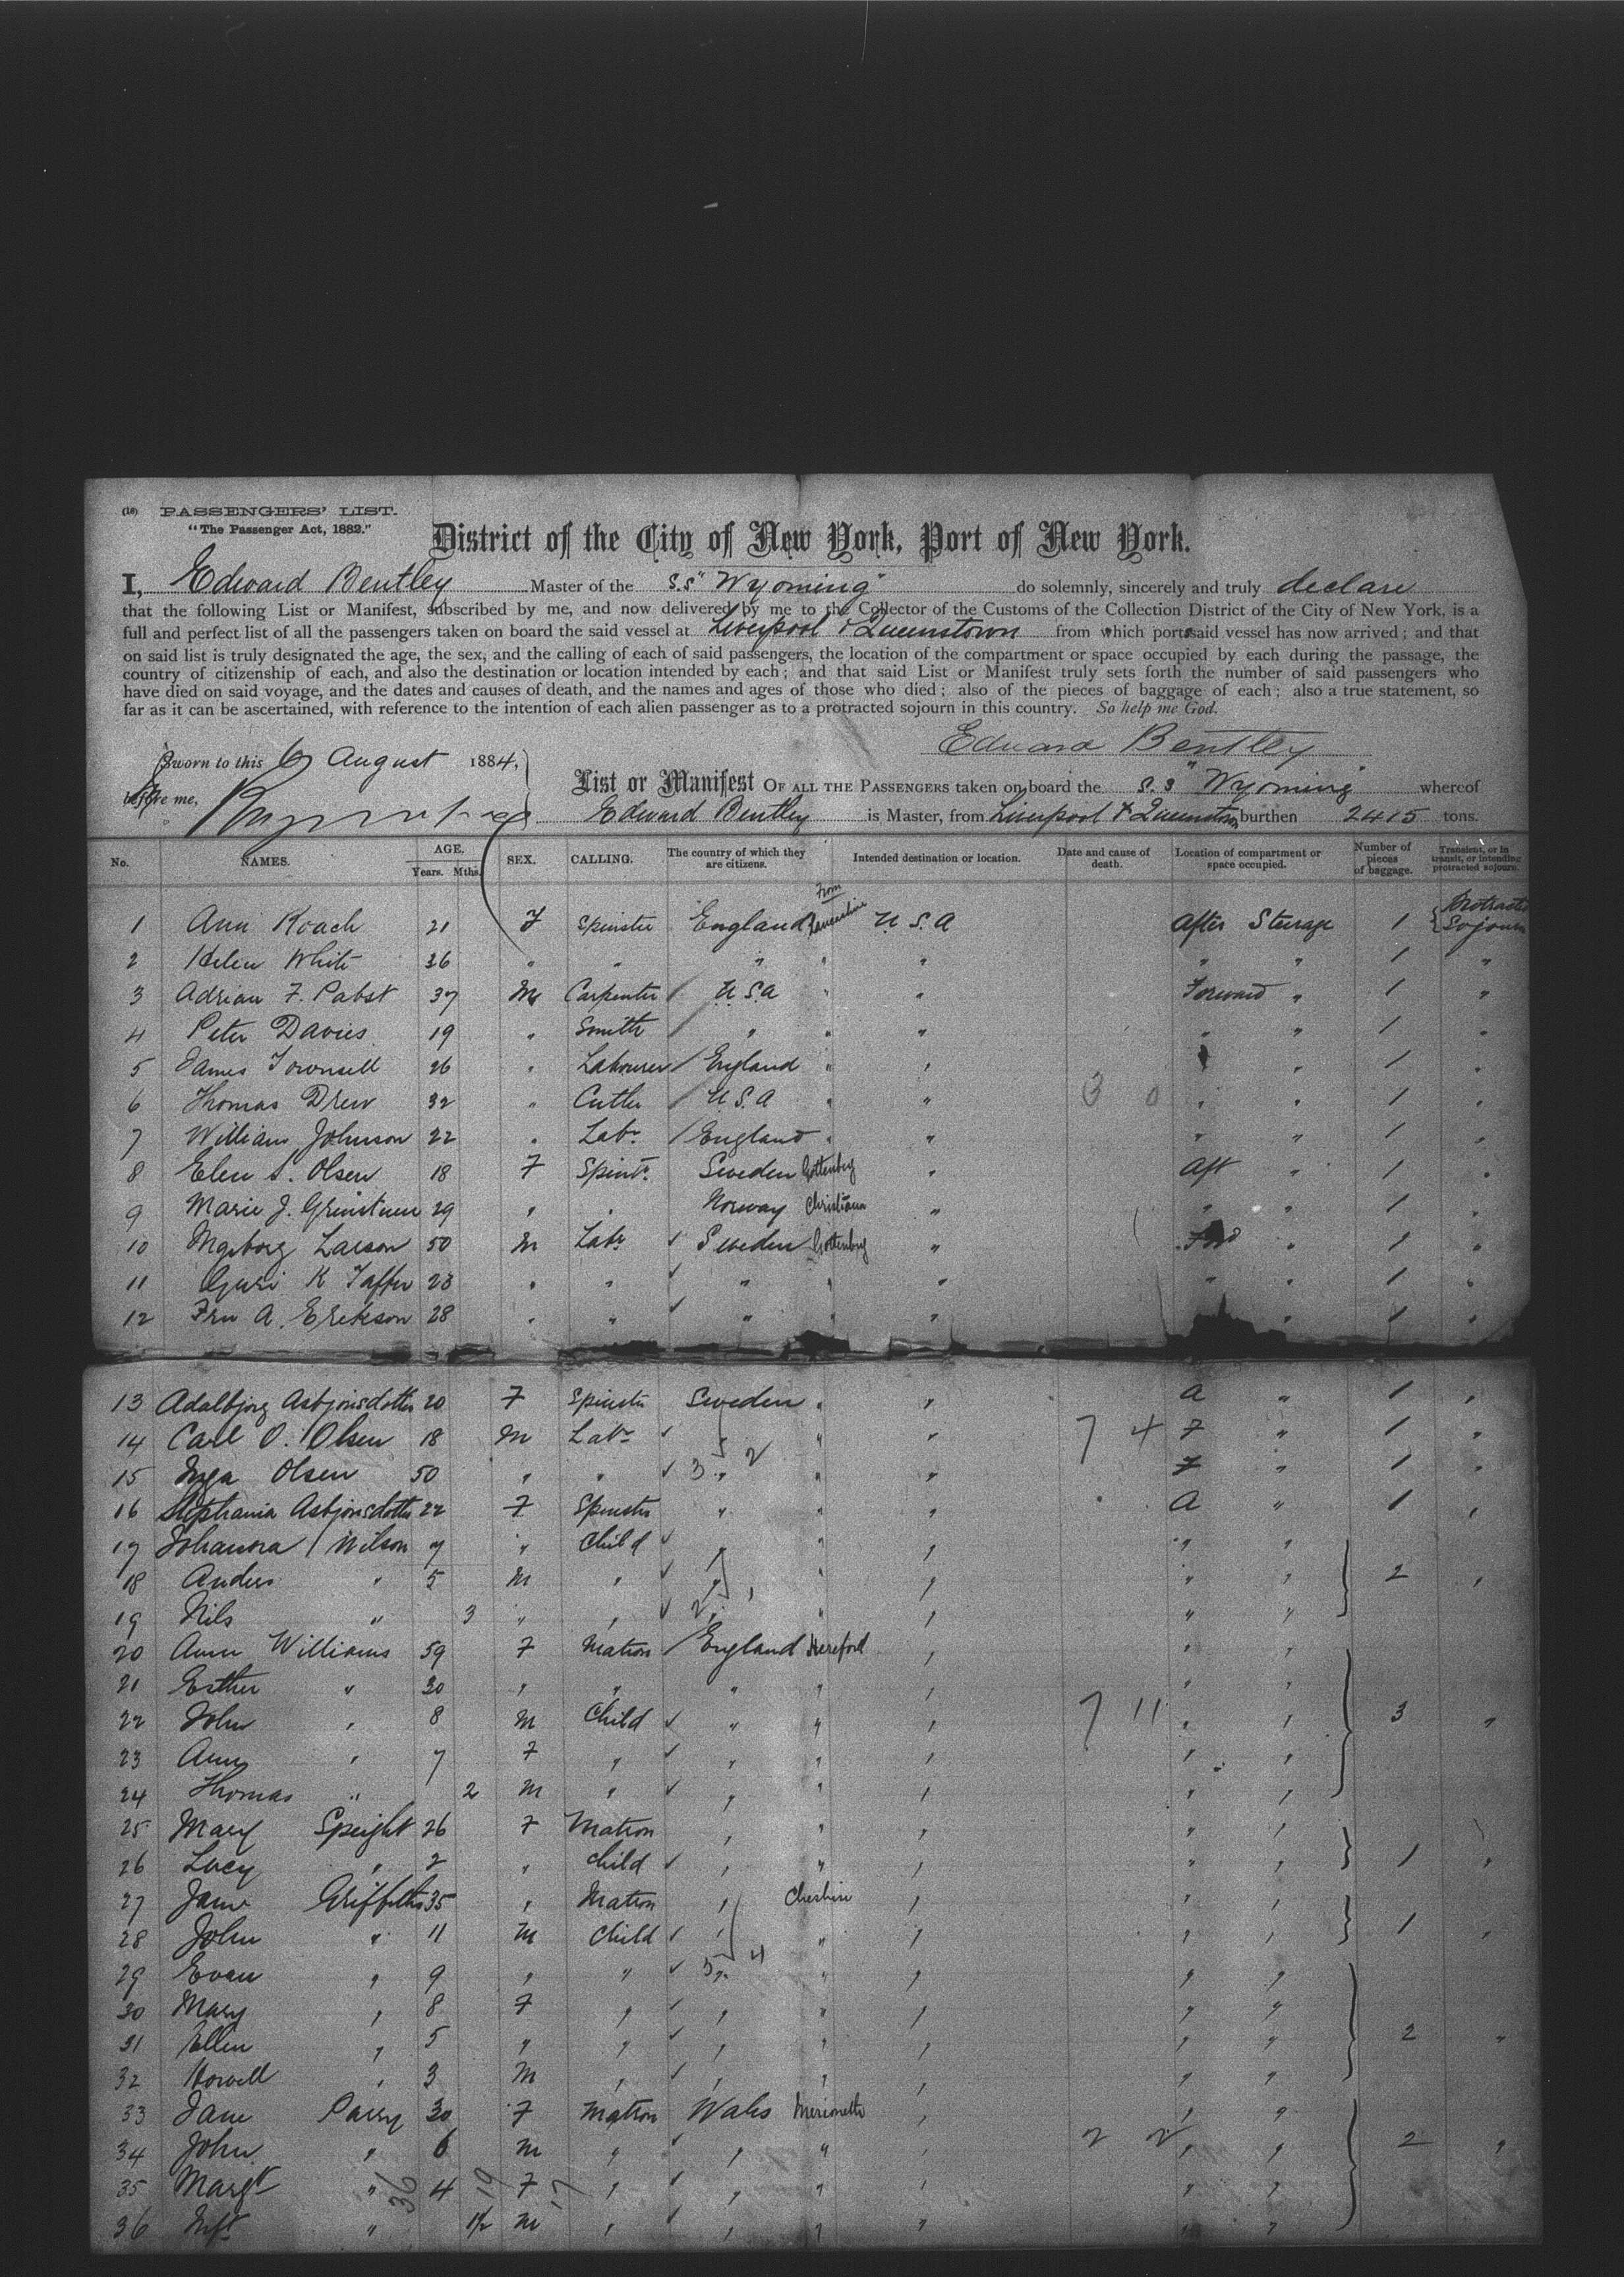 (18) PASSENGERS' LIST.
"The Passenger Act, 1882."
District of the City of New York, Port of New York.
I, Edward Bentley Master of the S.S. "Wyoming" do solemnly, sincerely and truly declare
that the following List or Manifest, subscribed by me, and now delivered by me to the Collector of the Customs of the Collection District of the City of New York, is a
full and perfect list of all the passengers taken on board the said vessel at Liverpool & Queenstown from which ports said vessel has now arrived; and that
on said list is truly designated the age, the sex, and the calling of each of said passengers, the location of the compartment or space occupied by each during the passage, the
country of citizenship of each, and also the destination or location intended by each; and that said List or Manifest truly sets forth the number of said passengers who
have died on said voyage, and the dates and causes of death, and the names and ages of those who died; also of the pieces of baggage of each; also a true statement, so
far as it can be ascertained, with reference to the intention of each alien passenger as to a protracted sojourn in this country. So help me God.
Edward Bentley
Sworn to this 6 August 1884,
before me,
List or Manifest OF ALL THE PASSENGERS taken on board the S.S. "Wyoming" whereof
Edward Bentley is Master, from Liverpool & Queenstown burthen 2415 tons.
No. NAMES. AGE. Years. Mths. SEX. CALLING. The country of which they are citizens. Intended destination or location. Date and cause of death. Location of compartment or space occupied. Number of pieces of baggage. Transient, or in transit, or intending protracted sojourn.
1 Ann Roach 21 F Spinster England From Lancashire U.S.A After Steerage 1 Protracted Sojourn
2 Helen White 36 " " " " " " " 1 "
3 Adrian F. Pabst 37 M Carpenter / U.S.A " " Forward " 1 "
4 Peter Davies 19 " Smith / " " " " " 1 "
5 James Townsell 26 " Labourer / England " " " 1 "
6 Thomas Drew 32 " Cutler / U.S.A " " 3 0 " " 1 "
7 William Johnson 22 " Labr / England " " " " 1 "
8 Elen S. Olsen 18 F Spinr Sweden Gottenberg " Aft " 1 "
9 Marie J. 29 " " Norway Christiana " " " 1 "
10 Ingeborg Larson 50 M Labr ✓ Sweden Gottenberg " Fwd " 1 "
11 Guri K 23 " " ✓ " " " " " 1 "
12 A. Erikson 28 " " ✓ " " " " 1 "
13 Adalbjorg Asbjornsdotter 20 F Spinster Sweden " " A " 1 "
14 Carl O. Olsen 18 M Labr ✓ " " " 7 4 F " 1 "
15 Inga Olsen 50 " " ✓ 3 " 2 " " F " 1 "
16 Stephania Asbjornsdotter 22 F Spinster " " " A " 1 "
17 Johanora / Wilson 7 " Child ✓ " " " " "
18 Anders " 5 M " ✓ " 1 " " " " 2 "
19 Nils " 3 " " ✓ 2 " " " " "
20 Ann Williams 59 F Matron / England Hereford " " "
21 Esther " 30 " " " " " " "
22 John " 8 M Child ✓ " " " 7 11 " " 3 "
23 Ann " 7 F " ✓ " " " " "
24 Thomas " 2 M " ✓ " " " " "
25 Mary Speight 26 F Matron " " " " "
26 Lucy " 2 " Child ✓ " " " " " 1 "
27 Jane Griffiths 35 " Matron " Cheshire " " "
28 John " 11 M Child ✓ " " " " " 1 "
29 Evan " 9 " " ✓ 5 " 4 " " " "
30 Mary " 8 F " ✓ " " " " "
31 Ellen " 5 " " ✓ " " " " " 2 "
32 Howell " 3 M " ✓ " " " " "
33 Jane Parry 30 F Matron Wales Merioneth " " "
34 John " 6 M " ✓ " " " 2 2 " " 2 "
35 Margt " 4 F " ✓ " " " " "
36 Inft " 1½ M " ✓ " " " " "
36 19 17